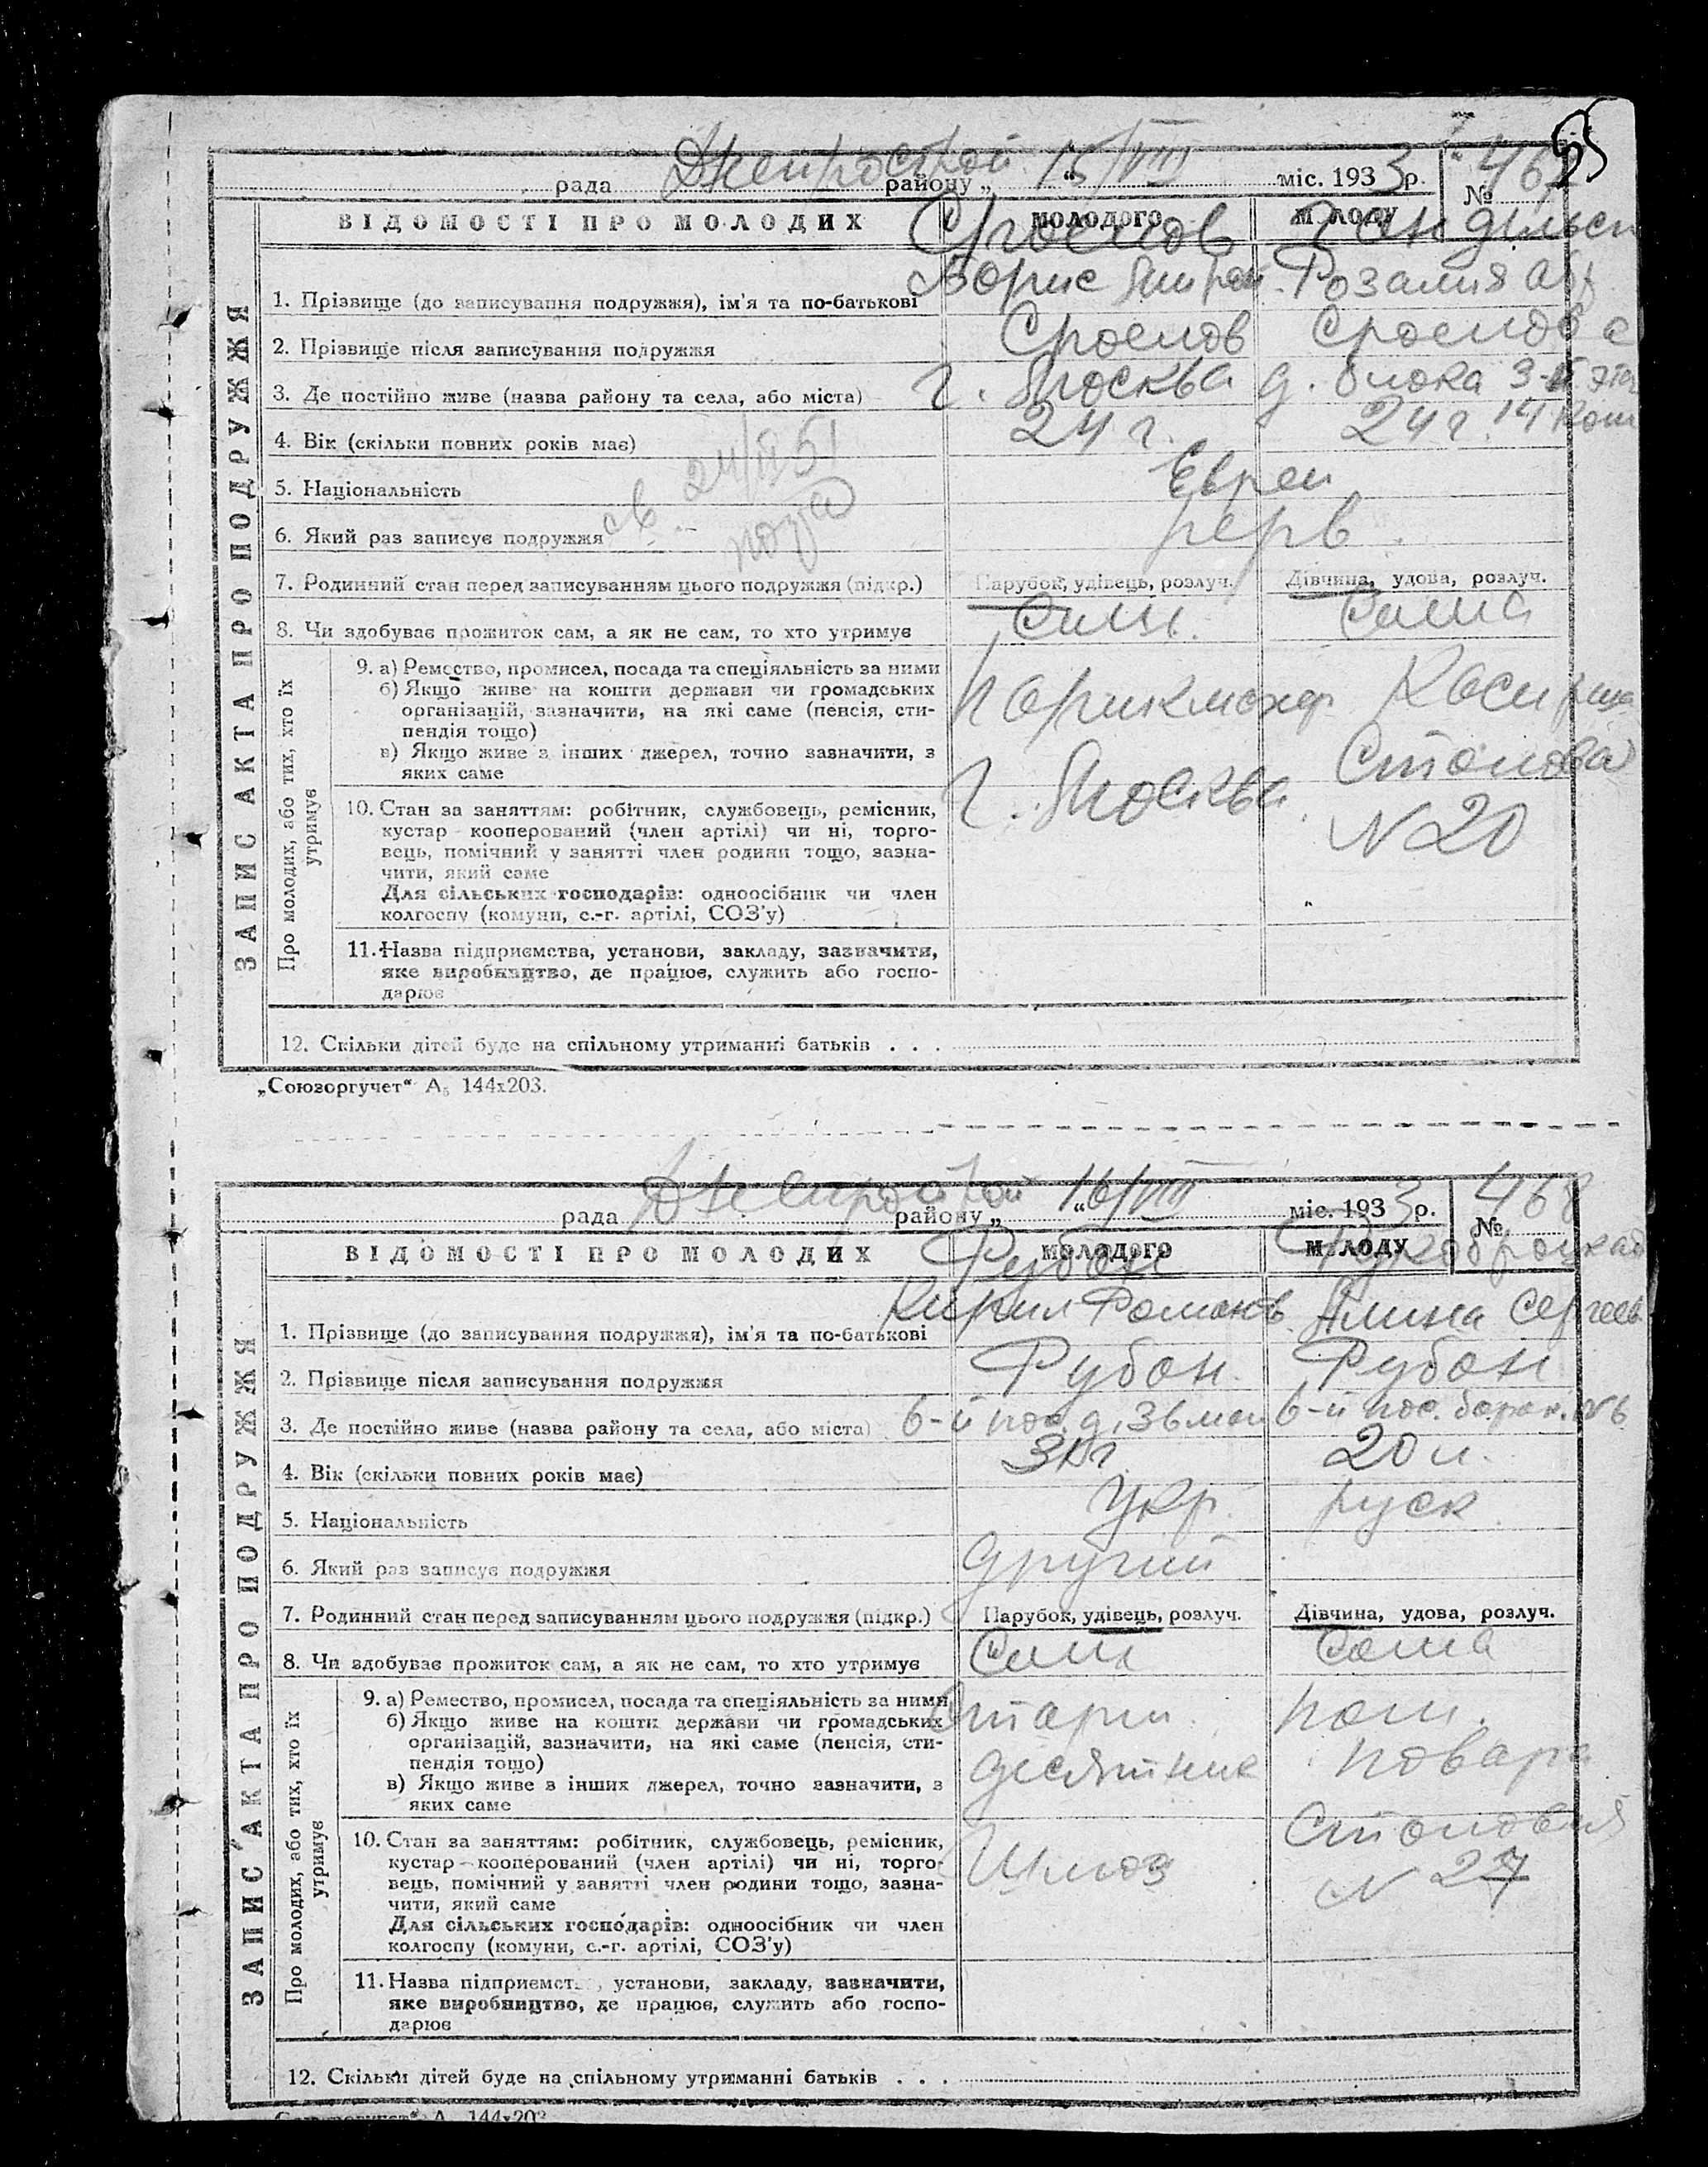 35
рада Днепрострой району „ 15/VIII “ міс. 1933 р. № 467
ВІДОМОСТІ ПРО МОЛОДИХ молодого молоду
1. Прізвище (до записування подружжя), ім'я та по-батькові Борис Розалия
2. Прізвище після записування подружжя
3. Де постійно живе (назва району та села, або міста) г. Москва
4. Вік (скільки повних років має) 24 г. 24 г.
5. Національність Евреи
6. Який раз записує подружжя перв.
св. 24/II 51
7. Родинний стан перед записуванням цього подружжя (підкр.) Парубок, удівець, розлуч. Дівчина, удова, розлуч.
8. Чи здобуває прожиток сам, а як не сам, то хто утримує Сам Сама
ЗАПИС АКТА ПРО ПОДРУЖЖЯ
Про молодих, або тих, хто їх утримує
9. а) Ремество, промисел, посада та спеціяльність за ними
б) Якщо живе на кошти держави чи громадських
організацій, зазначити, на які саме (пенсія, сти-
пендія тощо)
в) Якщо живе з інших джерел, точно зазначити, з
яких саме
Парикмахер
г. Москва
Касирша
Столовая
N 20
10. Стан за заняттям: робітник, службовець, ремісник,
кустар-кооперований (член артілі) чи ні, торго-
вець, помічний у занятті член родини тощо, зазна-
чити, який саме
Для сільських господарів: одноосібник чи член
колгоспу (комуни, с.-г. артілі, СОЗ'у)
11. Назва підприємства, установи, закладу, зазначити,
яке виробництво, де працює, служить або госпо-
дарює
12. Скільки дітей буде на спільному утриманні батьків . . .
„Союзоргучет“ А₅ 144х203.
рада Днепрострой району „ 16/VIII “ міс. 1933 р. № 468
ВІДОМОСТІ ПРО МОЛОДИХ молодого молоду
Рубан
1. Прізвище (до записування подружжя), ім'я та по-батькові Кирил Романов. Сергеев.
2. Прізвище після записування подружжя Рубан Рубан
3. Де постійно живе (назва району та села, або міста) 6-й пос. 6-й пос. барак. N 6
4. Вік (скільки повних років має) 20 л.
5. Національність укр. руск
6. Який раз записує подружжя другий
7. Родинний стан перед записуванням цього подружжя (підкр.) Парубок, удівець, розлуч. Дівчина, удова, розлуч.
8. Чи здобуває прожиток сам, а як не сам, то хто утримує Сам Сама
ЗАПИС АКТА ПРО ПОДРУЖЖЯ
Про молодих, або тих, хто їх утримує
9. а) Ремество, промисел, посада та спеціяльність за ними
б) Якщо живе на кошти держави чи громадських
організацій, зазначити, на які саме (пенсія, сти-
пендія тощо)
в) Якщо живе з інших джерел, точно зазначити, з
яких саме
десятник
Шлюз
пом.
повара
Столовая
N 27
10. Стан за заняттям: робітник, службовець, ремісник,
кустар-кооперований (член артілі) чи ні, торго-
вець, помічний у занятті член родини тощо, зазна-
чити, який саме
Для сільських господарів: одноосібник чи член
колгоспу (комуни, с.-г. артілі, СОЗ'у)
11. Назва підприємст , установи, закладу, зазначити,
яке виробництво, де працює, служить або госпо-
дарює
12. Скільки дітей буде на спільному утриманні батьків . . .
„Союзоргучет“ А 144х203